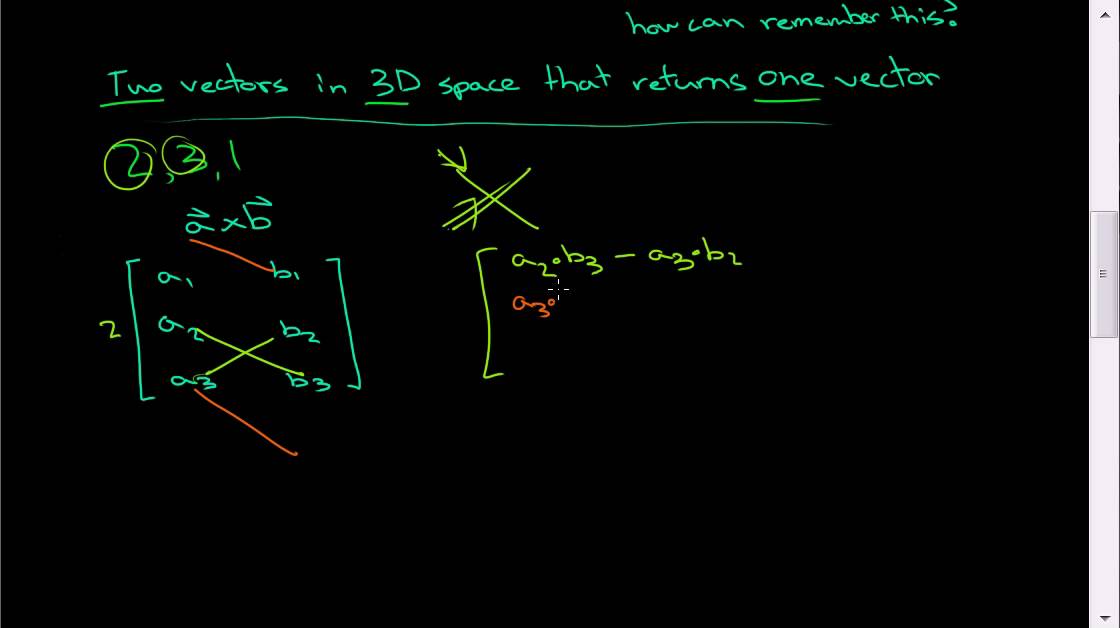 how can remember this?
Two vectors in 3D space that returns one vector
2, 3, 1
a⃗ × b⃗
a1 b1
2 a2 b2
a3 b3
a2 • b3 − a3 • b2
a3 •